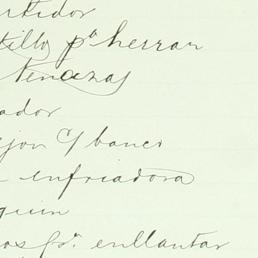 rtidor
tillo pª herrar
Tenazas
ador
jon c/ banco
enfriadora
quin
os pª enllantar